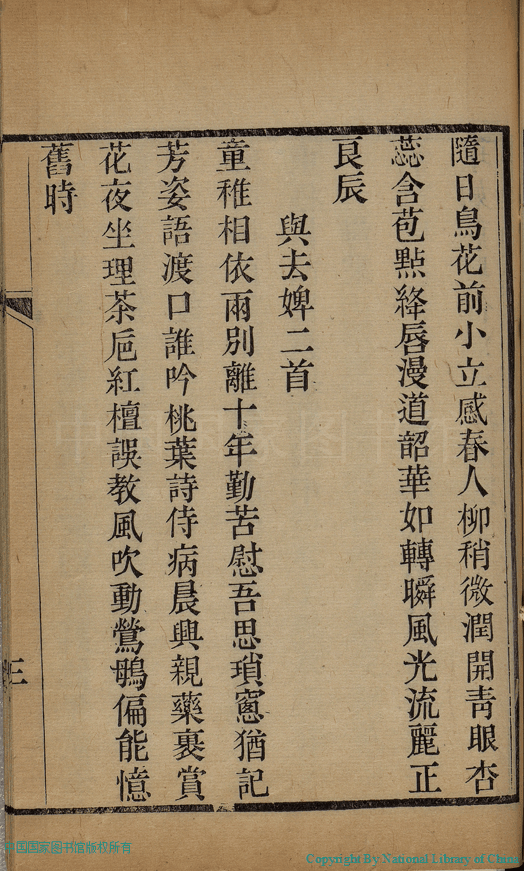 隨日鳥花前小立感春人柳稍微潤開青眼杏
蕊含苞點絳唇漫道韶華如轉瞬風光流麗正
良辰
與去婢二首
童稚相依雨別離十年勤苦慰吾思瑣窻猶記
芳姿語渡口誰吟桃葉詩侍病晨興親藥裹賞
花夜坐理茶卮紅檀誤教風吹動鶯鴨偏能憶
舊時
三
中国国家图书馆
国国家图书馆版权所有
Copyright By National Library of China